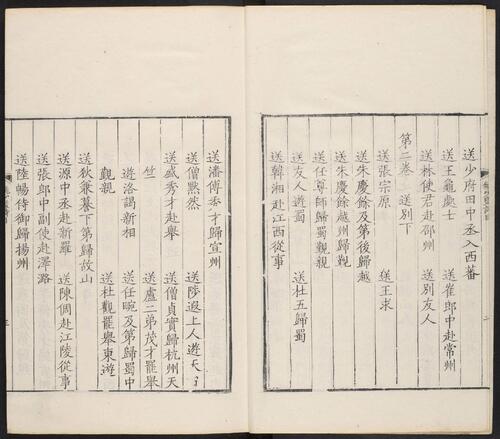 送少府田中丞入西蕃
送王龜處士 送崔郎中赴常州
送林使君赴邵州 送別友人
第二卷 送別下
送張宗原 送王求
送朱慶餘及第後歸越
送朱慶餘越州歸覲
送任尊師歸蜀覲親
送友人遊蜀 送杜五歸蜀
送韓湘赴江西從事
送潘傅秀才歸宣州
送僧黙然 送陟遐上人遊天台
送盛秀才赴舉 送僧貞實歸杭州天
竺 送盧二弟茂才罷舉
遊洛謁新相 送任畹及第歸蜀中
覲親 送杜觀罷舉東遊
送狄兼謩下第歸故山
送源中丞赴新羅 送陳倜赴江陵從事
送張郎中副使赴澤潞
送陸暢侍御歸揚州